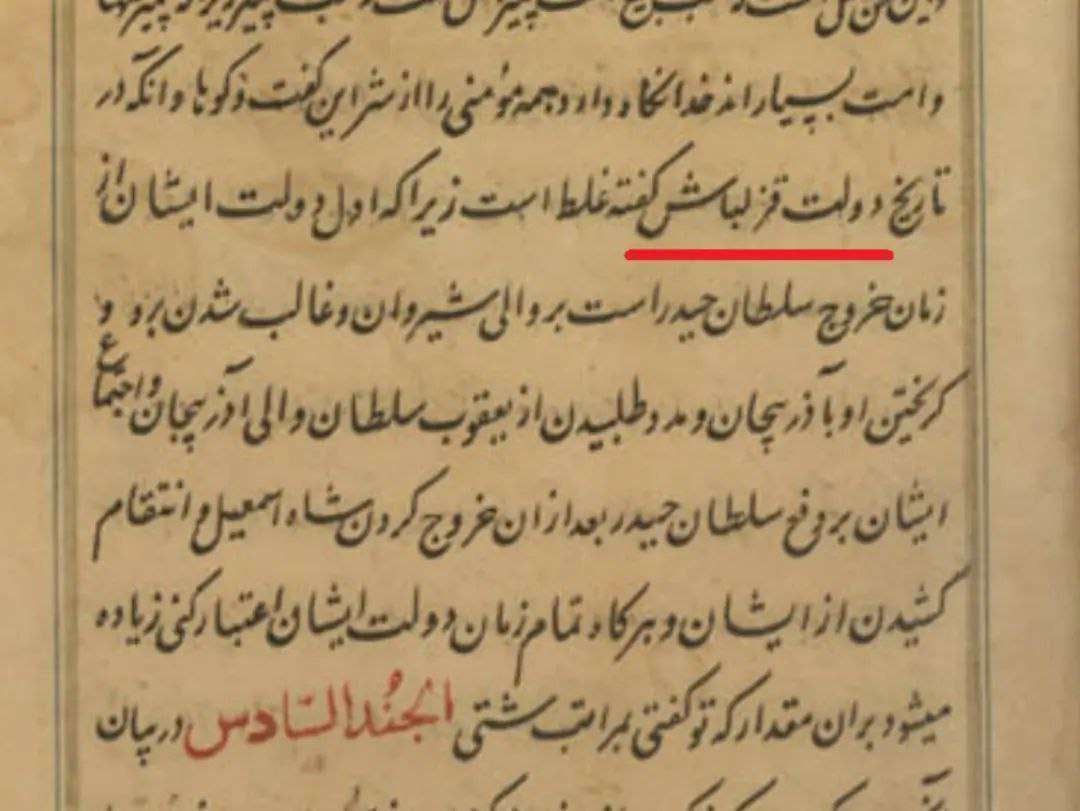 و امت بسیار اند خدا نگاه دارد همه مؤمنی را از شر این گفت و گوها و انکه در
تاریخ دولت قزلباش گفته غلط است زیرا که اول دولت ایشان از
زمان خروج سلطان حیدر است بر والی شیروان و غالب شدن برو و
کریختن او باذربیجان و مدد طلبیدن از یعقوب سلطان والی آذربیجان و اجتماع
ایشان بر دفع سلطان حیدر بعد از ان خروج کردن شاه اسمعیل و انتقام
کشیدن از ایشان و هرکاه تمام زمان دولت ایشان اعتبار کنی زیاده
میشود بران مقدار که تو کفتی بمراتب شتی الجُند السّادس در بیان